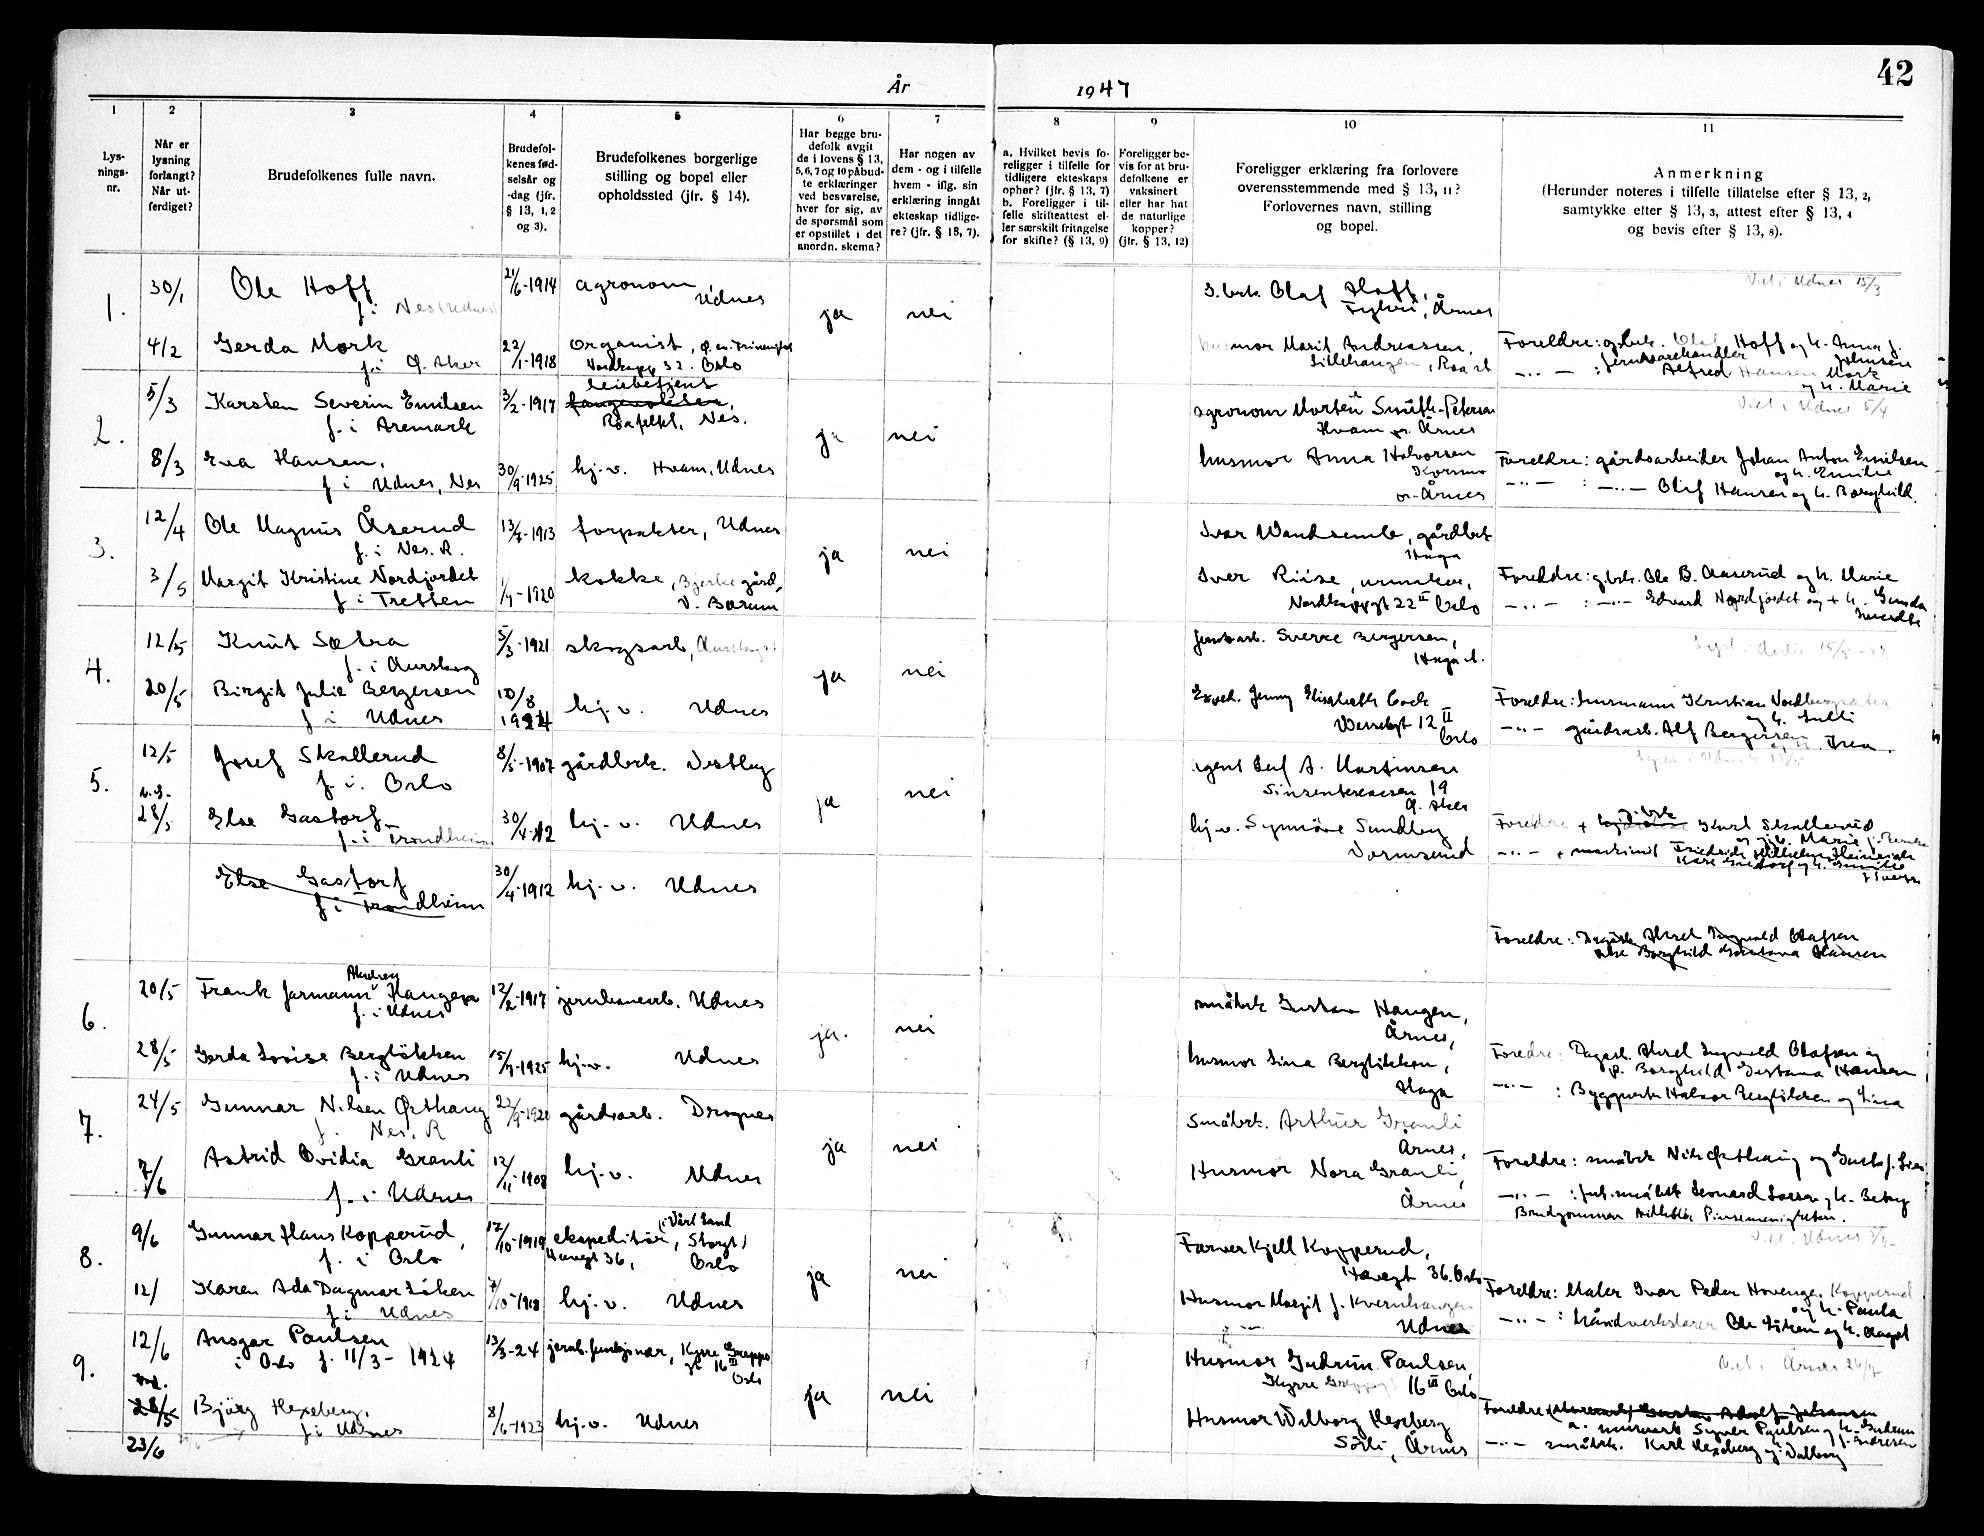 42
År 1947
1
2
3
4
5
6
7
8
9
10
11
Lys-
nings-
nr.
Når er
lysning
forlangt?
Når ut-
ferdiget?
Brudefolkenes fulle navn.
Brudefol-
kenes fød-
selsår og
-dag (jfr.
§ 13, 1, 2
og 3).
Brudefolkenes borgerlige
stilling og bopel eller
opholdssted (jfr. § 14).
Har begge bru-
defolk avgit
de i lovens § 13,
5, 6, 7 og 10 påbud-
te erklæringer
ved besvarelse,
hver for sig, av
de spørsmål som
er opstillet i det
anordn. skema?
Har nogen av
dem - og i tilfelle
hvem - iflg. sin
erklæring inngåt
ekteskap tidlige-
re? (jfr. § 13, 7).
a. Hvilket bevis fo-
religger i tilfelle for
tidligere ekteskaps
ophør? (jfr. § 13, 7)
b. Foreligger i til-
felle skifteattest el-
ler særskilt fritagelse
for skifte? (§ 13, 9)
Foreligger be-
vis for at bru-
defolkene er
vaksinert
eller har hat
de naturlige
kopper?
(jfr. § 13, 12)
Foreligger erklæring fra forlovere
overensstemmende med § 13, 11?
Forlovernes navn, stilling
og bopel.
Anmerkning
(Herunder noteres i tilfelle tillatelse efter § 13, 2,
samtykke efter § 13, 3, attest efter § 13, 4
og bevis efter § 13, 8).
1.
30/1
Ole Hoff
f. i Nes (Udnes)
21/6-1914
agronom
Udnes
ja
nei
Olaf Hoff,
Årnes
Viet i Udnes 15/3
4/2
Gerda Mork
f. i Ø. Aker
22/1-1918
organist,
Nordkapp 32. Oslo
husmor Marit Andreassen,
Lillehaugen, Roa st
Foreldre: gbrk. Olaf Hoff og h. Anna f.
Johnsen
—"— : jernvarehandler
Alfred Hansen Mork
og h. Marie
2.
5/3
Karsten Severin Emilsen
f. i Aremark
3/2-1917
leiebetjent
Nes.
ja
nei
agronom Morten Smith-Petersen
Hvam pr. Årnes
Viet i Udnes 5/4
8/3
Eva Hansen,
f. i Udnes, Nes
30/9-1925
hj.v. Hvam, Udnes
husmor Anna Halvorsen
Korsmo
pr. Årnes
Foreldre: gårdsarbeider Johan Anton Emilsen
og h. Emilie
—"— : —"— Olif Hansen og h. Borghild.
3.
12/4
Ole Magnus Åserud
f. i Nes. R.
13/4-1913
forpakter, Udnes
ja
nei
Ivar Wandsemb, gårdbr.
Haga
3/5
Margit Kristine Nordjordet
f. i Tretten
1/4-1920
kokke, Bjerke gård,
V. Bærum
Iver Riise, urmaker,
Nordkappgt 22 II Oslo
Foreldre: gbrk. Ole B. Aaserud og h. Marie
—"— : —"— Edvard Nordjordet og + h. Gunda
4.
12/5
Knut Sætra
f. i Aurskog
5/3-1921
skogsarb, Aurskog
ja
nei
Sverre Bergersen,
Haga st.
20/5
Birgit Julie Bergersen
f. i Udnes
10/8
1924
hj. v. Udnes
Jenny Elisabeth Cock
Wesselsgt 12 II
Oslo
Foreldre: husmann Kristian
og h.
—"— gårdsarb. Alf Bergersen
og h. Thea.
5.
12/5
Josef Skallerud
f. i. Oslo
8/5-1907
gårdbrk. Vestby
ja
nei
agent Leif A. Martinsen
Sinsenterrassen 19
Ø. Aker
28/5
Else Gastorf
f. i Trondheim
30/4-12
hj. v. Udnes
hj.v. Synnöve Sundby
Vormsund
Foreldre + Karl Skallerud
—"— + maskinist Friedrich Wilhelm Heinrich
Else Gastorf
f. i Trondheim
30/4-1912
hj. v. Udnes
Foreldre: Dagarb. Aksel Ingvald Olafsen
Borghild Gustava Hansen
6.
20/5
Frank Jarmann Haugen
f. i Udnes
12/2-1917
jernbanearb. Udnes
ja.
nei
småbrk Gustav Haugen,
Årnes,
28/5
Gerda Lovise Bergløkken
f. i Udnes
15/9-1925
hj.v. Udnes
husmor Lina Bergløkken,
Haga
Foreldre: Dagarb. Aksel Ingvald Olafsen og
p. Borghild Gustava Hansen
—"— : Byggmester Halvor Bergløkken og Lina
7.
24/5
Gunnar Nilsen Østhaug
f. Nes. R
22/9-1920
gårdsarb. Drognes
ja
nei
Småbrk. Arthur Granli
Årnes,
7/6
Astrid Ovidia Granli
f. i Udnes
12/11-1908
hj. v. Udnes
Husmor Nora Granli,
Årnes
Foreldre: småbrk Nils Østhaug og
—"— : småbrk Leonard Larsen og h. Betsy
Brudgommen tilhører Pinsemenigheten.
8.
9/6
Gunnar Hans Kopperud,
f. i Oslo
12/10-1919
ekspeditør, (i Vårt Land
Storgt)
36, Oslo
ja
nei
Farver Kjell Kopperud,
36. Oslo
Viet i Udnes
12/
Karen Ada Dagmar Løken
f. i Udnes
7/10-1918
hj. v. Udnes
Husmor Margit f. Kvernhaugen
Udnes
Foreldre: Maler Ivar Peder Hovenge Kopperud
og h. Paula
—"— : håndverkslærer Ole Løken og h. Aagot
9.
12/6
Ansgar Paulsen
i Oslo f. 11/3-1924
13/3-24
jernb.funksjonær,
gt 16 III
Oslo
ja
nei
Husmor Gudrun Paulsen,
16 III Oslo
Viet i Årnes 26/7
28/5
Bjørg Hexeberg,
f. i Udnes
8/6-1923
hj. v. Udnes
Husmor Wilborg Hexeberg
Sørli, Årnes
Foreldre Gustav Adolf Johansen
Syver Paulsen og h. Gudrun
f. Andresen
—"— småbrk. Karl Hexeberg og h. Valborg
23/6